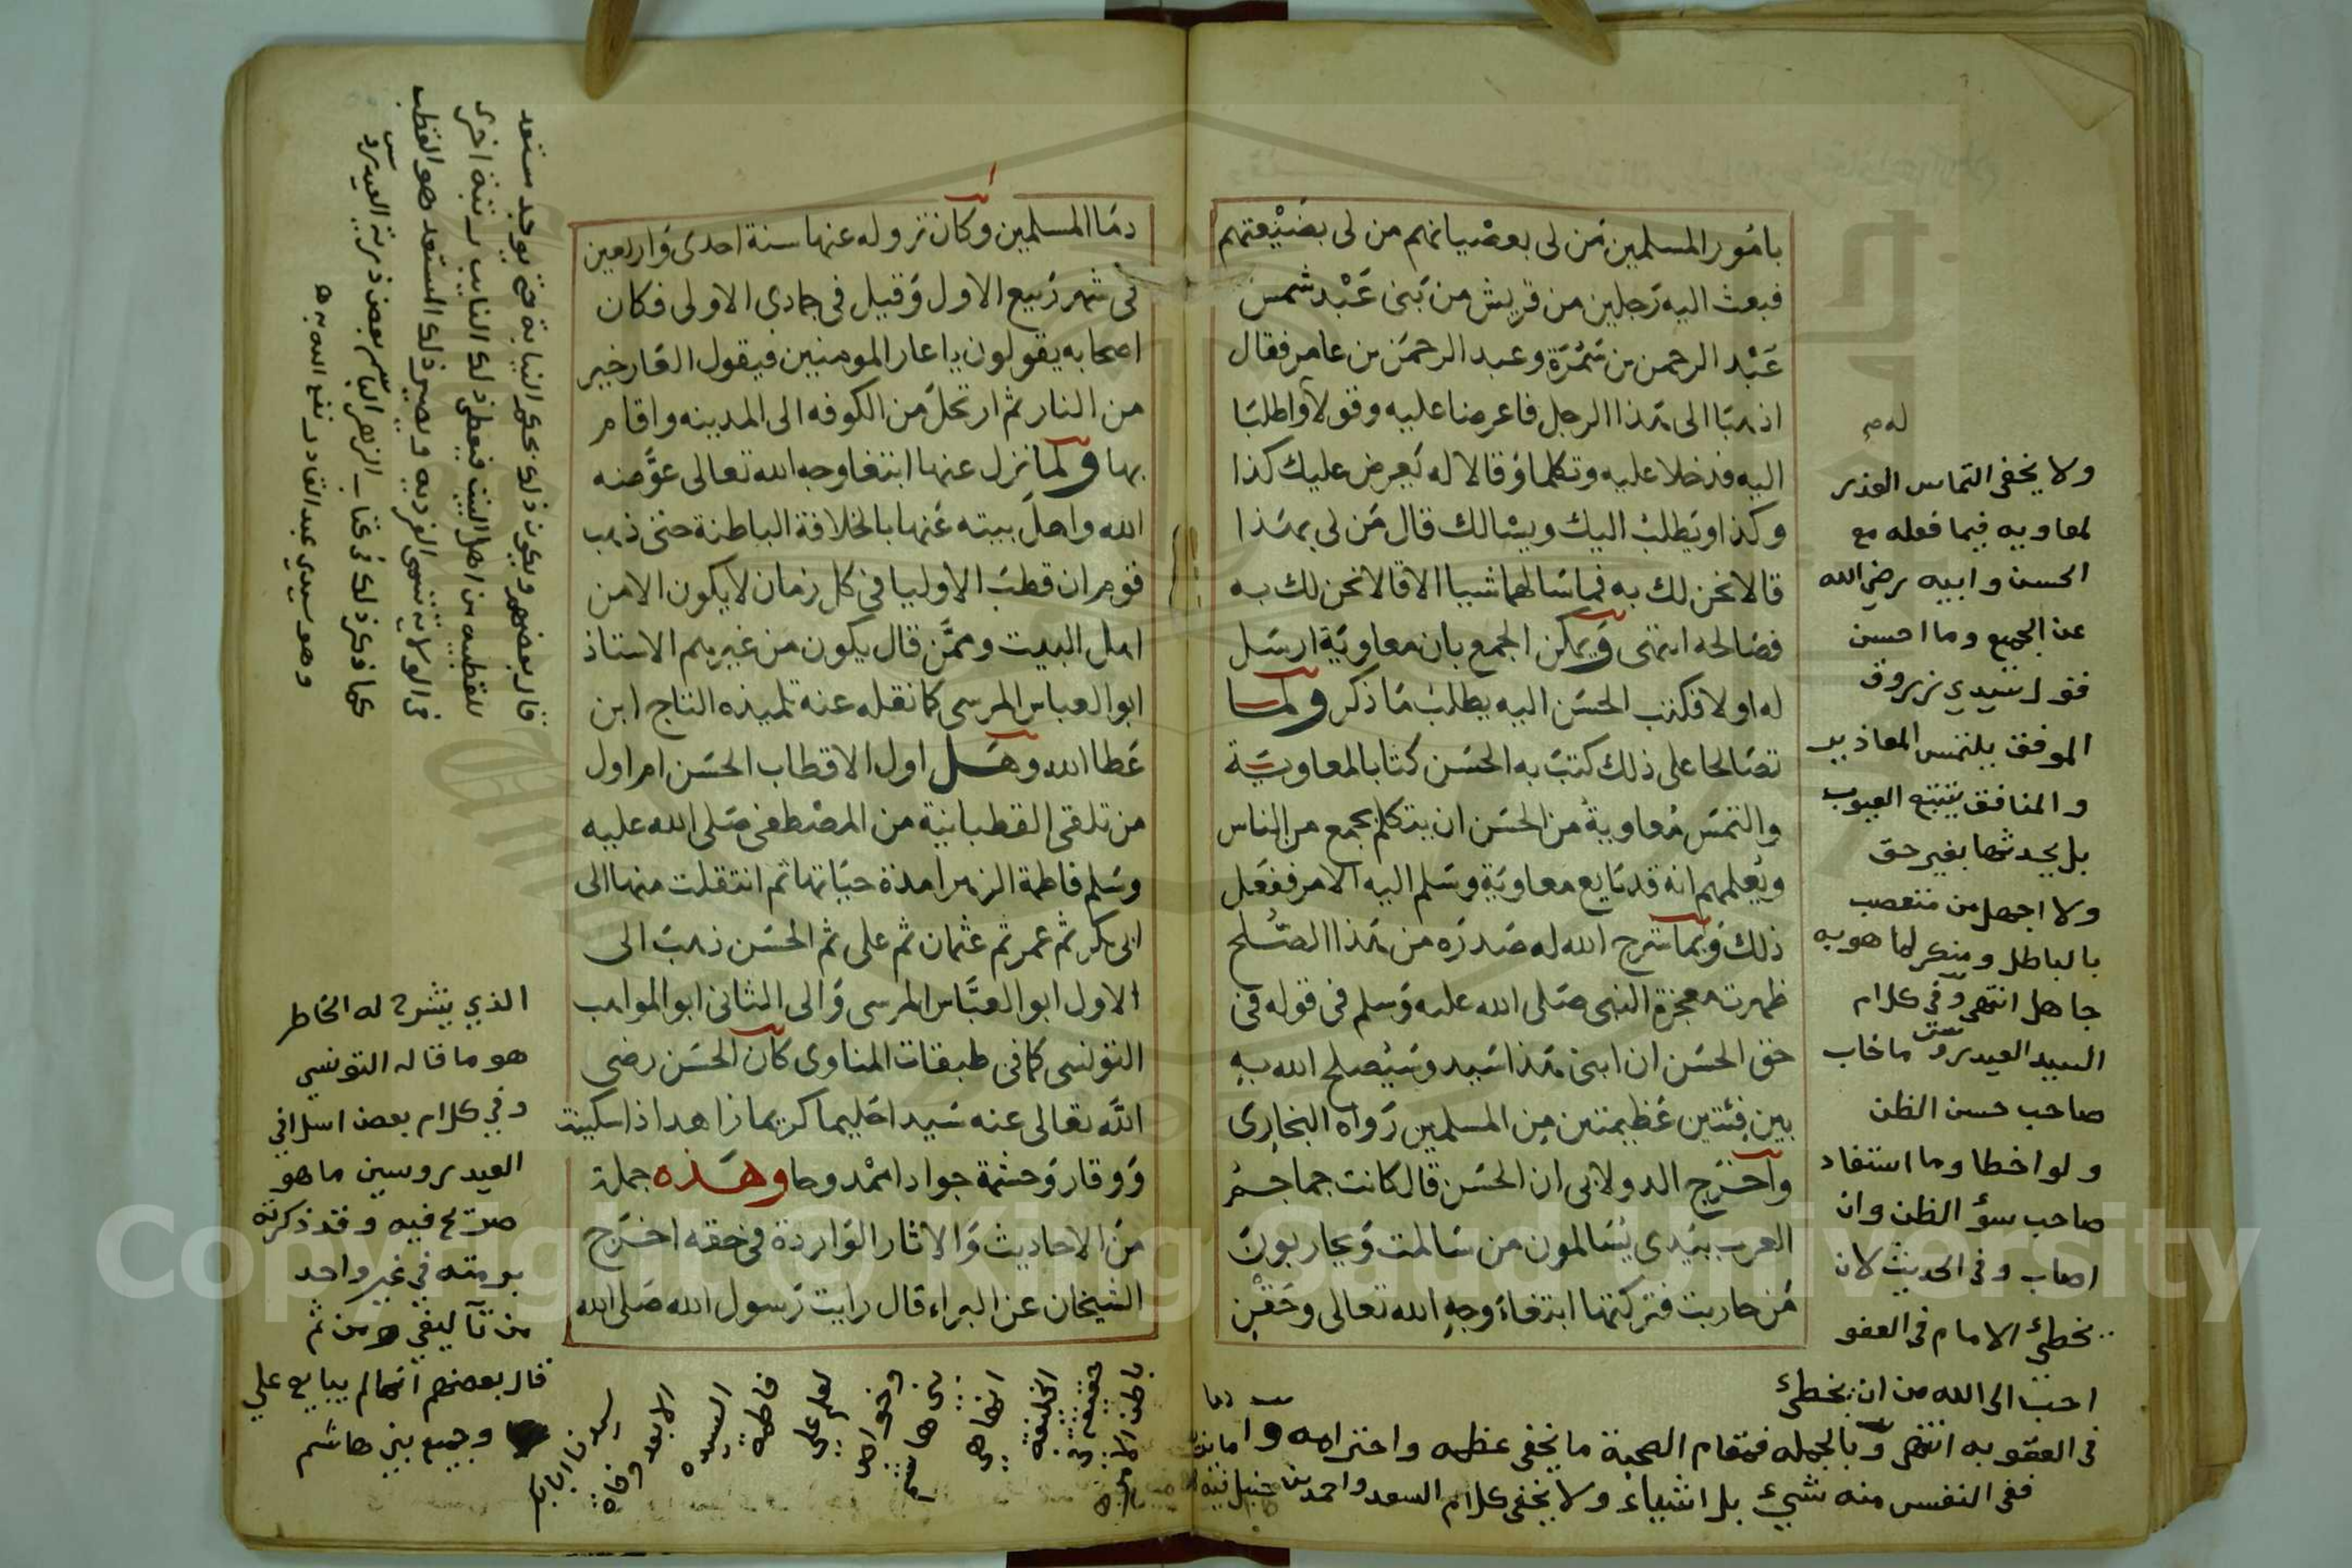 بامور المسلمين من لى بعصيانهم من لى بضيعتهم
فبعث اليه رجلين من قريش من بنى عبد شمس
عبد الرحمن بن سمرة وعبد الرحمن بن عامر فقال
اذهبا الى هذا الرجل فاعرضا عليه وقولا واطلبا
اليه فدخلا عليه وتكلما وقالا له يعرض عليك كذا
وكذا ويطلب اليك ويسالك قال من لى بهذا
قالا نحن لك به فما سالهما شيا الا قالا نحن لك به
فصالحه انتهى ويمكن الجمع بان معاوية ارسل
له اولا فكتب الحسن اليه يطلب ما ذكر ولما
تصالحا على ذلك كتب به الحسن كتابا لمعاوية
والتمس معاوية من الحسن ان يتكلم بجمع من الناس
ويعلمهم انه قد بايع معاوية وسلم اليه الامر ففعل
ذلك وبما شرح الله له صدره من هذا الصلح
ظهرت معجزة النبى صلى الله عليه وسلم فى قوله فى
حق الحسن ان ابنى هذا سيد وسيصلح الله به
بين فئتين عظيمتين من المسلمين رواه البخارى
واخرج الدولابى ان الحسن قال كانت جماجم
العرب بيدى يسالمون من سالمت ويحاربون
من حاربت فتركتها ابتغاء وجه الله تعالى وحقن
ولا يخفى التماس العذر
لمعاويه فيما فعله مع
الحسن وابيه رضي الله
عن الجميع وما احسن
قول سيدي زروق
الموفق يلتمس المعاذير
والمنافق يتتبع العيوب
بل يحدثها بغير حق
ولا اجهل من متعصب
بالباطل ومنكر لما هو به
جاهل انتهى وفى كلام
السيد العيدروس ما خاب
صاحب حسن الظن
ولو اخطا وما استفاد
صاحب سؤ الظن وان
اصاب وفى الحديث لان
يخطئ الامام فى العفو
احب الى الله من ان يخطئ
فى العقوبه انتهى وبالجمله فمقام الصحبة ما يخفى عظمه واحترامه واما
ففى النفس منه شيئ بل اشياء ولا يخفى كلام السعد واحمد بن حنبل فيه
دما المسلمين وكان نزوله عنها سنة احدى واربعين
فى شهر ربيع الاول وقيل فى جمادى الاولى فكان
اصحابه يقولون يا عار المومنين فيقول العار خير
من النار ثم ارتحل من الكوفه الى المدينه واقام
بها ولما نزل عنها ابتغا وجه الله تعالى عوضه
الله واهل بيته عنها بالخلافة الباطنة حتى ذهب
قوم ان قطب الاوليا فى كل زمان لا يكون الا من
اهل البيت وممن قال يكون من غيرهم الاستاذ
ابو العباس المرسى كما نقله عنه تلميذه التاج ابن
عطا الله وهل اول الاقطاب الحسن ام اول
من تلقى القطبانية من المصطفى صلى الله عليه
وسلم فاطمة الزهرا مدة حياتها ثم انتقلت منها الى
ابى بكر ثم عمر ثم عثمان ثم على ثم الحسن ذهب الى
الاول ابو العباس المرسى والى الثانى ابو المواهب
التونسى كما فى طبقات المناوى كان الحسن رضى
الله تعالى عنه سيدا حليما كريما زاهدا ذا سكينة
ووقار وحشمة جوادا ممدوحا وهذه جملة
من الاحاديث والاثار الواردة فى حقه اخرج
الشيخان عن البراء قال رايت رسول الله صلى الله
الذي ينشرح له الخاطر
هو ما قاله التونسي
وفي كلام بعض اسلافي
العيدروسين ما هو
صريح فيه وقد ذكرته
برمته في غير واحد
من تآليفي ومن ثم
قال بعضهم انما لم يبايع علي
وجميع بني هاشم
سيدنا ابابكر
الا بعد وفاة
السيده
فاطمة
قال بعضهم ويكون ذلك بحكم النيابة حتى يوجد مستعد
للقطبيه من اهل البيت فيعطى ذلك النايب رتبة اخرى
كما ذكر ذلك فى كتاب الزهر الباسم بعض ذرية العيدروس
وهو سيدي عبد القادر نفع الله به